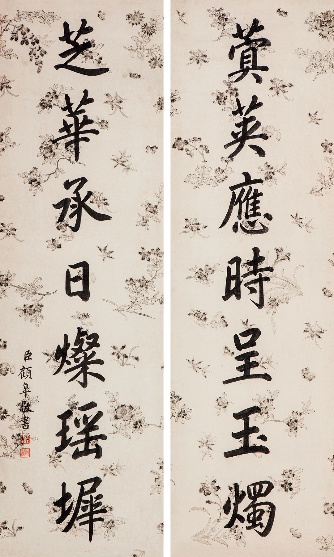 蓂莢應時呈玉燭
芝華承日燦瑤墀
臣顧皋敬書